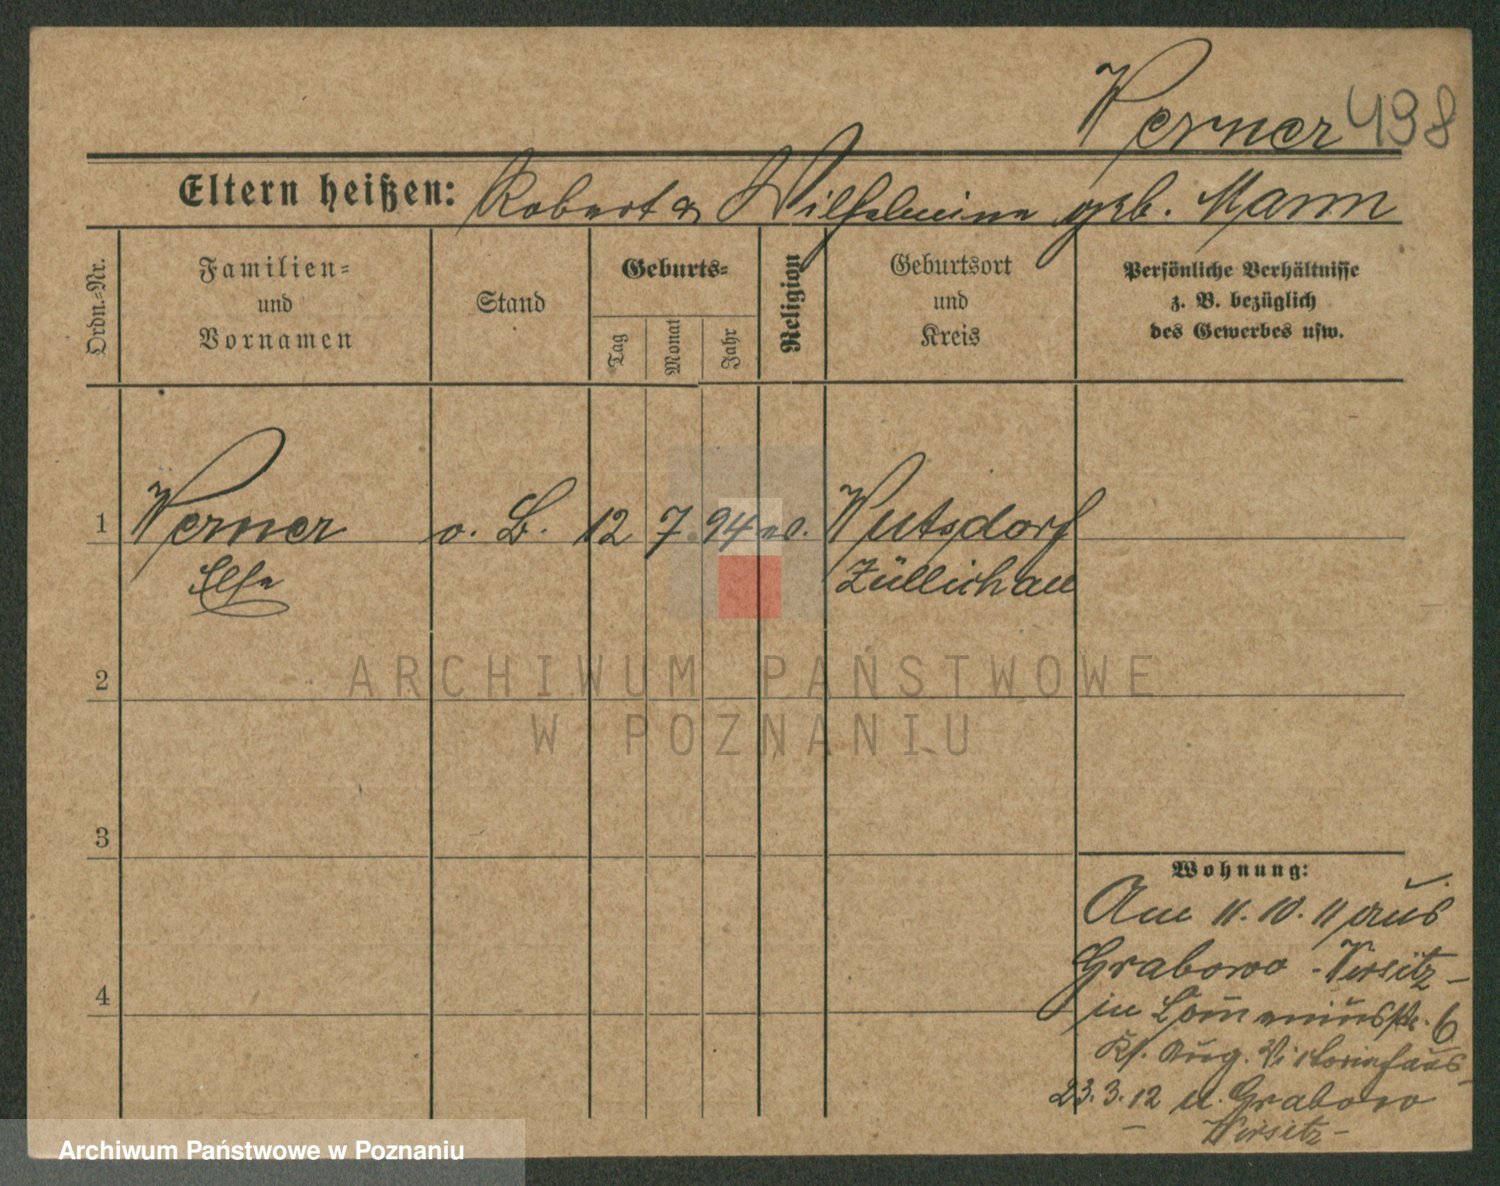 Werner 498
Eltern heißen: Robert & Wilhelmine geb. Mann
Ordn.-Nr.
Familien-
und
Vornamen
Stand
Geburts-
Tag
Monat
Jahr
Religion
Geburtsort
und
Kreis
Persönliche Verhältnisse
z. B. bezüglich
des Gewerbes usw.
1 Werner o. B. 12 7. 94 ev. Wutsdorf
Else Züllichau
ARCHIWUM PAŃSTWOWE
W POZNANIU
2
3
4
Wohnung:
Am 11.10.11 aus
Grabowo - Wirsitz -
in 6
Ks. Aug. Victoriahaus
23.3.12 n. Grabowo
- Wirsitz -
Archiwum Państwowe w Poznaniu